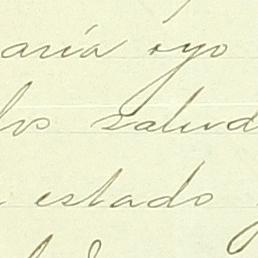 aría oyo
los salud
estado